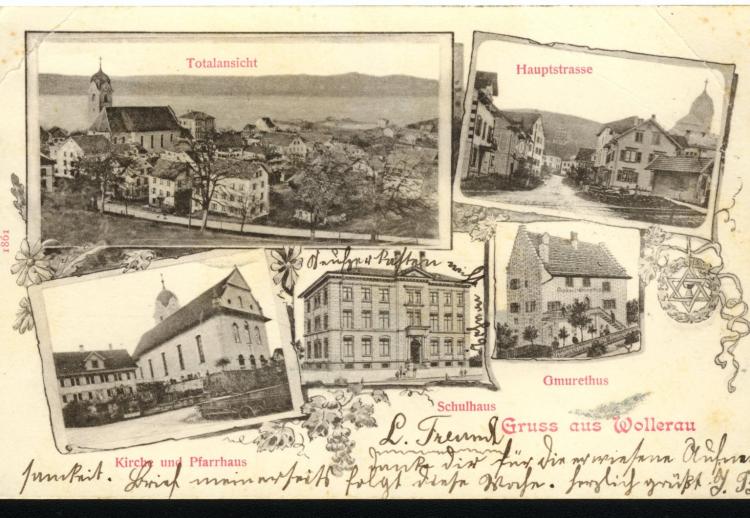 Totalansicht
Hauptstrasse
1861
Schulhaus
Gmurethus
Kirche und Pfarrhaus
Gruss aus Wollerau
L. Freund
dank dir für die erwiesene Aufmerk
samkeit. Brief meinerseits folgt diese Woche. herzlich grüßt J. B